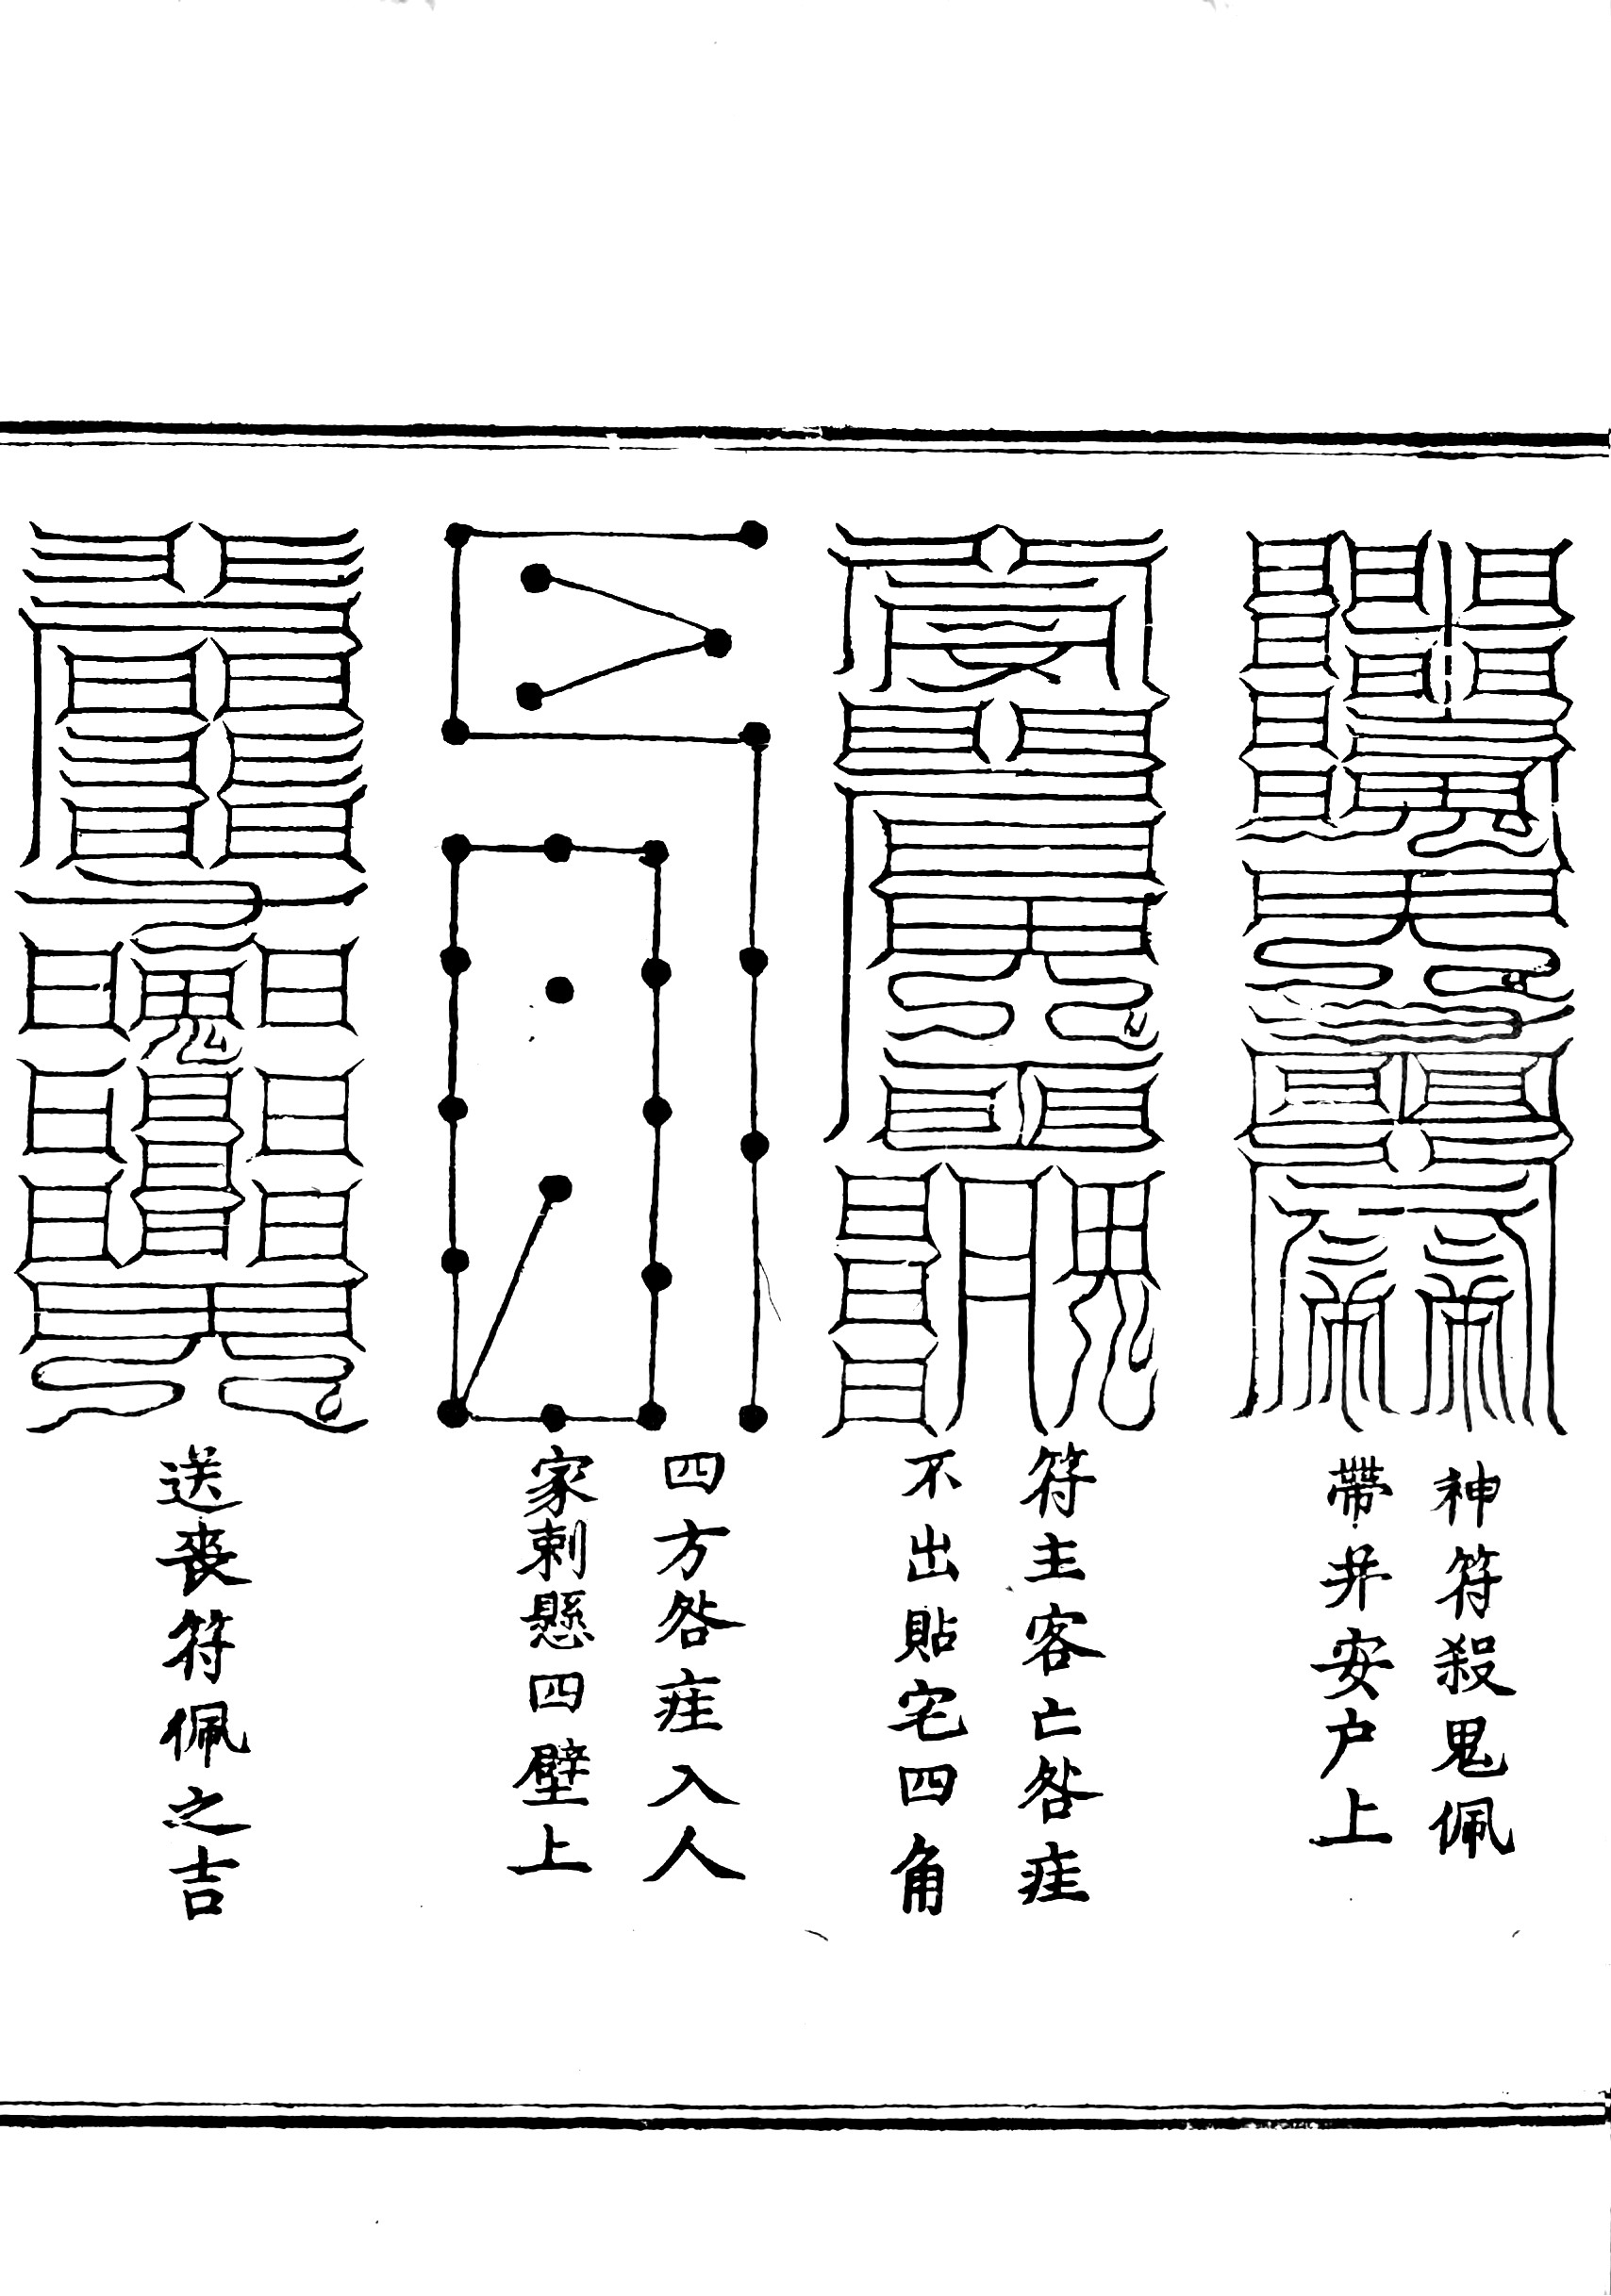 神符殺鬼佩
帶并安户上
符主客亡咎疰
不出貼宅四角
四方咎疰入人
家刺懸四壁上
送喪符佩之吉